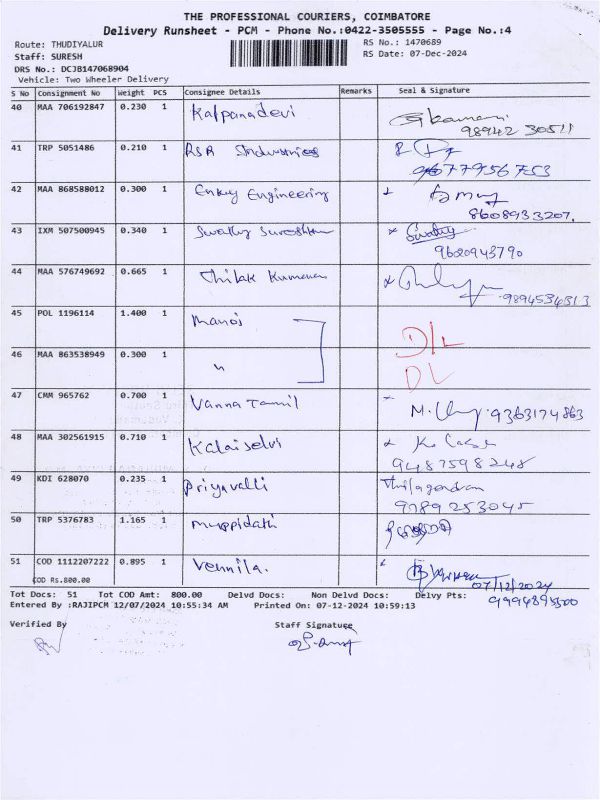 THE PROFESSIONAL COURIERS, COIMBATORE
Delivery Runsheet - PCM - Phone No.:0422-3505555 - Page No.:4
Route: THUDIYALUR RS No.: 1470689
Staff: SURESH RS Date: 07-Dec-2024
DRS No.: DCJB147068904
Vehicle: Two Wheeler Delivery
S No Consignment No Weight PCS Consignee Details Remarks Seal & Signature
40 MAA 706192847 0.230 1 Kalpanadevi
98942 30511
41 TRP 5051486 0.210 1 RSR Industries
9677956753
42 MAA 868588012 0.300 1 Enkey Engineering
8608933207.
43 IXM 507500945 0.340 1 Swathy Sureshkum Swathy
9620943790
44 MAA 576749692 0.665 1 Thilak Kumaran
9894534513
45 POL 1196114 1.400 1 Manoj D/L
46 MAA 863538949 0.300 1 " DL
47 CMM 965762 0.700 1 Vanna Tamil M. 9363174863
48 MAA 302561915 0.710 1 Kalaiselvi
9487598248
49 KDI 628070 0.235 1 Priyavalli Thilagendran
9789253045
50 TRP 5376783 1.165 1 Muppidathi
51 COD 1112207222 0.895 1 Vennila.
COD Rs.800.00 07/12/2024
Tot Docs: 51 Tot COD Amt: 800.00 Delvd Docs: Non Delvd Docs: Delvy Pts:
9994895500
Entered By :RAJIPCM 12/07/2024 10:55:34 AM Printed On: 07-12-2024 10:59:13
Verified By Staff Signature